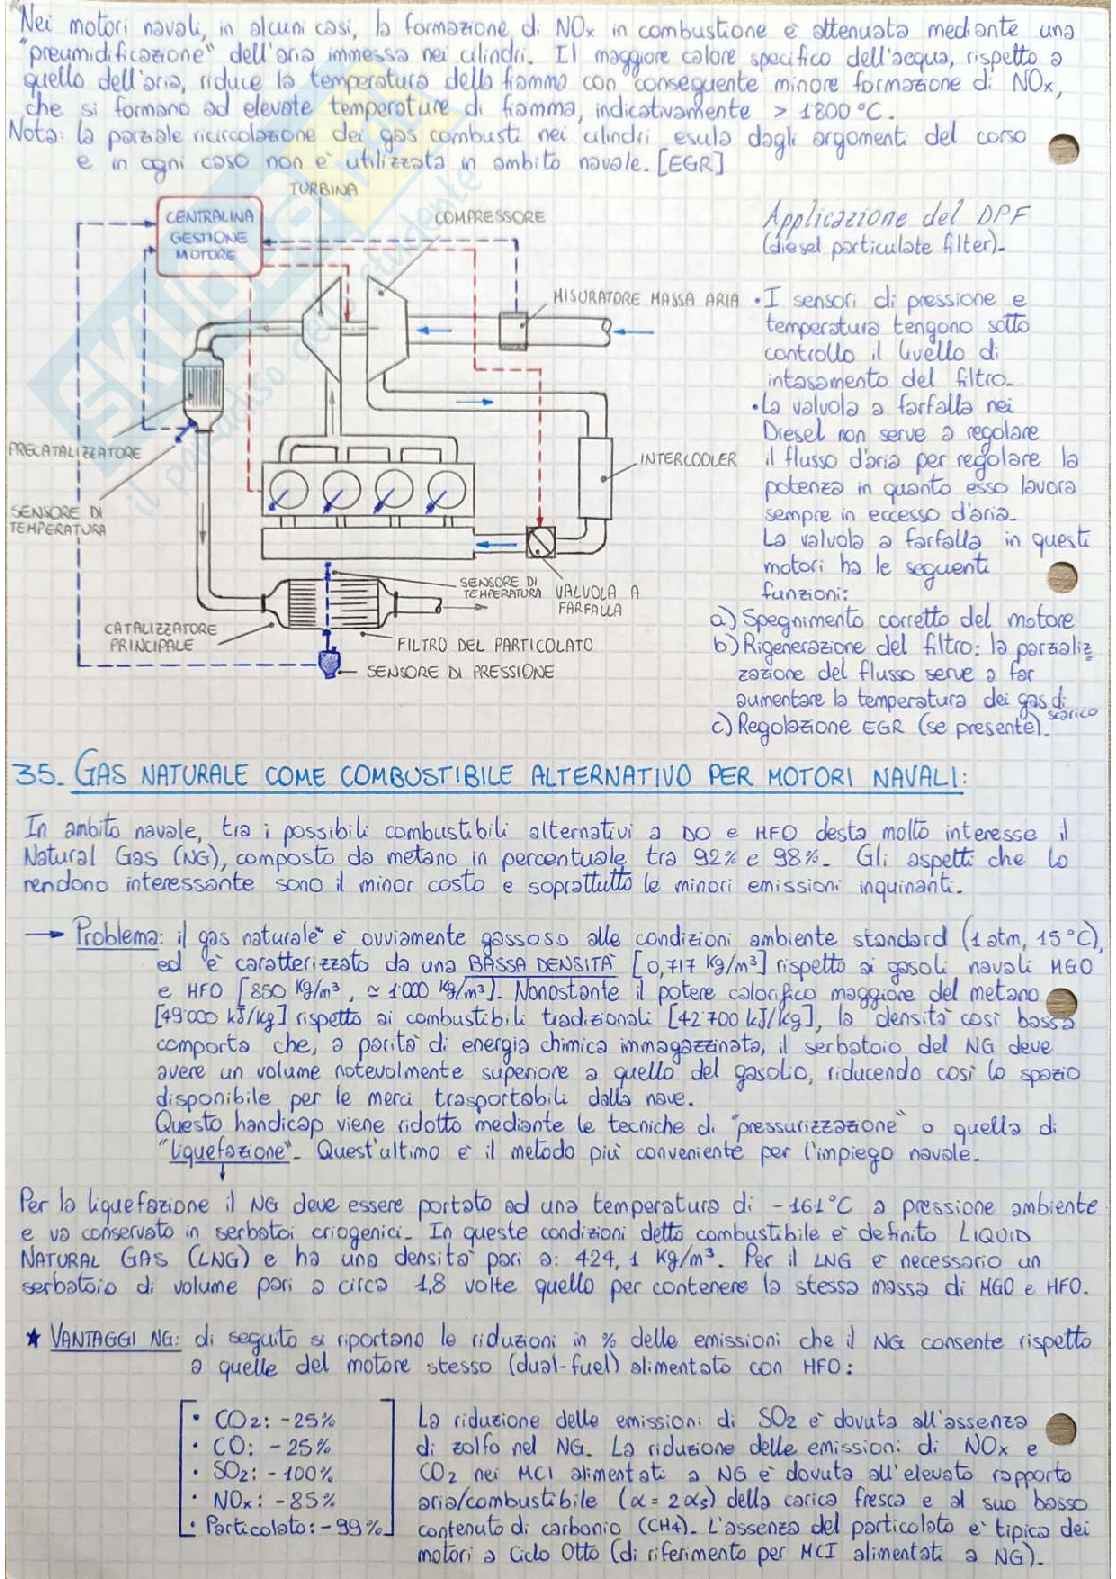 Nei motori navali, in alcuni casi, la formazione di NOx in combustione è attenuata mediante una
"preumidificazione" dell'aria immessa nei cilindri. Il maggiore calore specifico dell'acqua, rispetto a
quello dell'aria, riduce la temperatura della fiamma con conseguente minore formazione di NOx,
che si formano ad elevate temperature di fiamma, indicativamente > 1800 °C.
Nota: la parziale ricircolazione dei gas combusti nei cilindri esula dagli argomenti del corso
e in ogni caso non è utilizzata in ambito navale. [EGR]
TURBINA
COMPRESSORE
CENTRALINA
GESTIONE
MOTORE
MISURATORE MASSA ARIA
PRECATALIZZATORE
SENSORE DI
TEMPERATURA
INTERCOOLER
SENSORE DI
TEMPERATURA
VALVOLA A
FARFALLA
CATALIZZATORE
PRINCIPALE
FILTRO DEL PARTICOLATO
SENSORE DI PRESSIONE
Applicazione del DPF
(diesel particulate filter).
• I sensori di pressione e
temperatura tengono sotto
controllo il livello di
intasamento del filtro.
• La valvola a farfalla nei
Diesel non serve a regolare
il flusso d'aria per regolare la
potenza in quanto esso lavora
sempre in eccesso d'aria.
La valvola a farfalla in questi
motori ha le seguenti
funzioni:
a) Spegnimento corretto del motore
b) Rigenerazione del filtro: la parzializ
zazione del flusso serve a far
aumentare la temperatura dei gas di
scarico
c) Regolazione EGR (se presente).
35. GAS NATURALE COME COMBUSTIBILE ALTERNATIVO PER MOTORI NAVALI:
In ambito navale, tra i possibili combustibili alternativi a DO e HFO desta molto interesse il
Natural Gas (NG), composto da metano in percentuale tra 92% e 98%. Gli aspetti che lo
rendono interessante sono il minor costo e soprattutto le minori emissioni inquinanti.
→ Problema: il gas naturale è ovviamente gassoso alle condizioni ambiente standard (1 atm, 15°C),
ed è caratterizzato da una BASSA DENSITÀ [0,717 Kg/m³] rispetto ai gasoli navali MGO
e HFO [850 Kg/m³, ≃ 1'000 Kg/m³]. Nonostante il potere calorifico maggiore del metano
[49'000 kJ/kg] rispetto ai combustibili tradizionali [42'700 kJ/kg], la densità così bassa
comporta che, a parità di energia chimica immagazzinata, il serbatoio del NG deve
avere un volume notevolmente superiore a quello del gasolio, riducendo così lo spazio
disponibile per le merci trasportabili dalla nave.
Questo handicap viene ridotto mediante le tecniche di "pressurizzazione" o quella di
"liquefazione". Quest'ultimo è il metodo più conveniente per l'impiego navale.
Per la liquefazione il NG deve essere portato ad una temperatura di -161°C a pressione ambiente
e va conservato in serbatoi criogenici. In queste condizioni detto combustibile è definito LIQUID
NATURAL GAS (LNG) e ha una densità pari a: 424,1 Kg/m³. Per il LNG è necessario un
serbatoio di volume pari a circa 1,8 volte quello per contenere la stessa massa di MGO e HFO.
★ VANTAGGI NG: di seguito si riportano le riduzioni in % delle emissioni che il NG consente rispetto
a quelle del motore stesso (dual-fuel) alimentato con HFO:
• CO2: -25%
• CO: -25%
• SO2: -100%
• NOx: -85%
• Particolato: -99%
La riduzione delle emissioni di SO2 è dovuta all'assenza
di zolfo nel NG. La riduzione delle emissioni di NOx e
CO2 nei MCI alimentati a NG è dovuta all'elevato rapporto
aria/combustibile (α = 2αs) della carica fresca e al suo basso
contenuto di carbonio (CH4). L'assenza del particolato è tipica dei
motori a Ciclo Otto (di riferimento per MCI alimentati a NG).